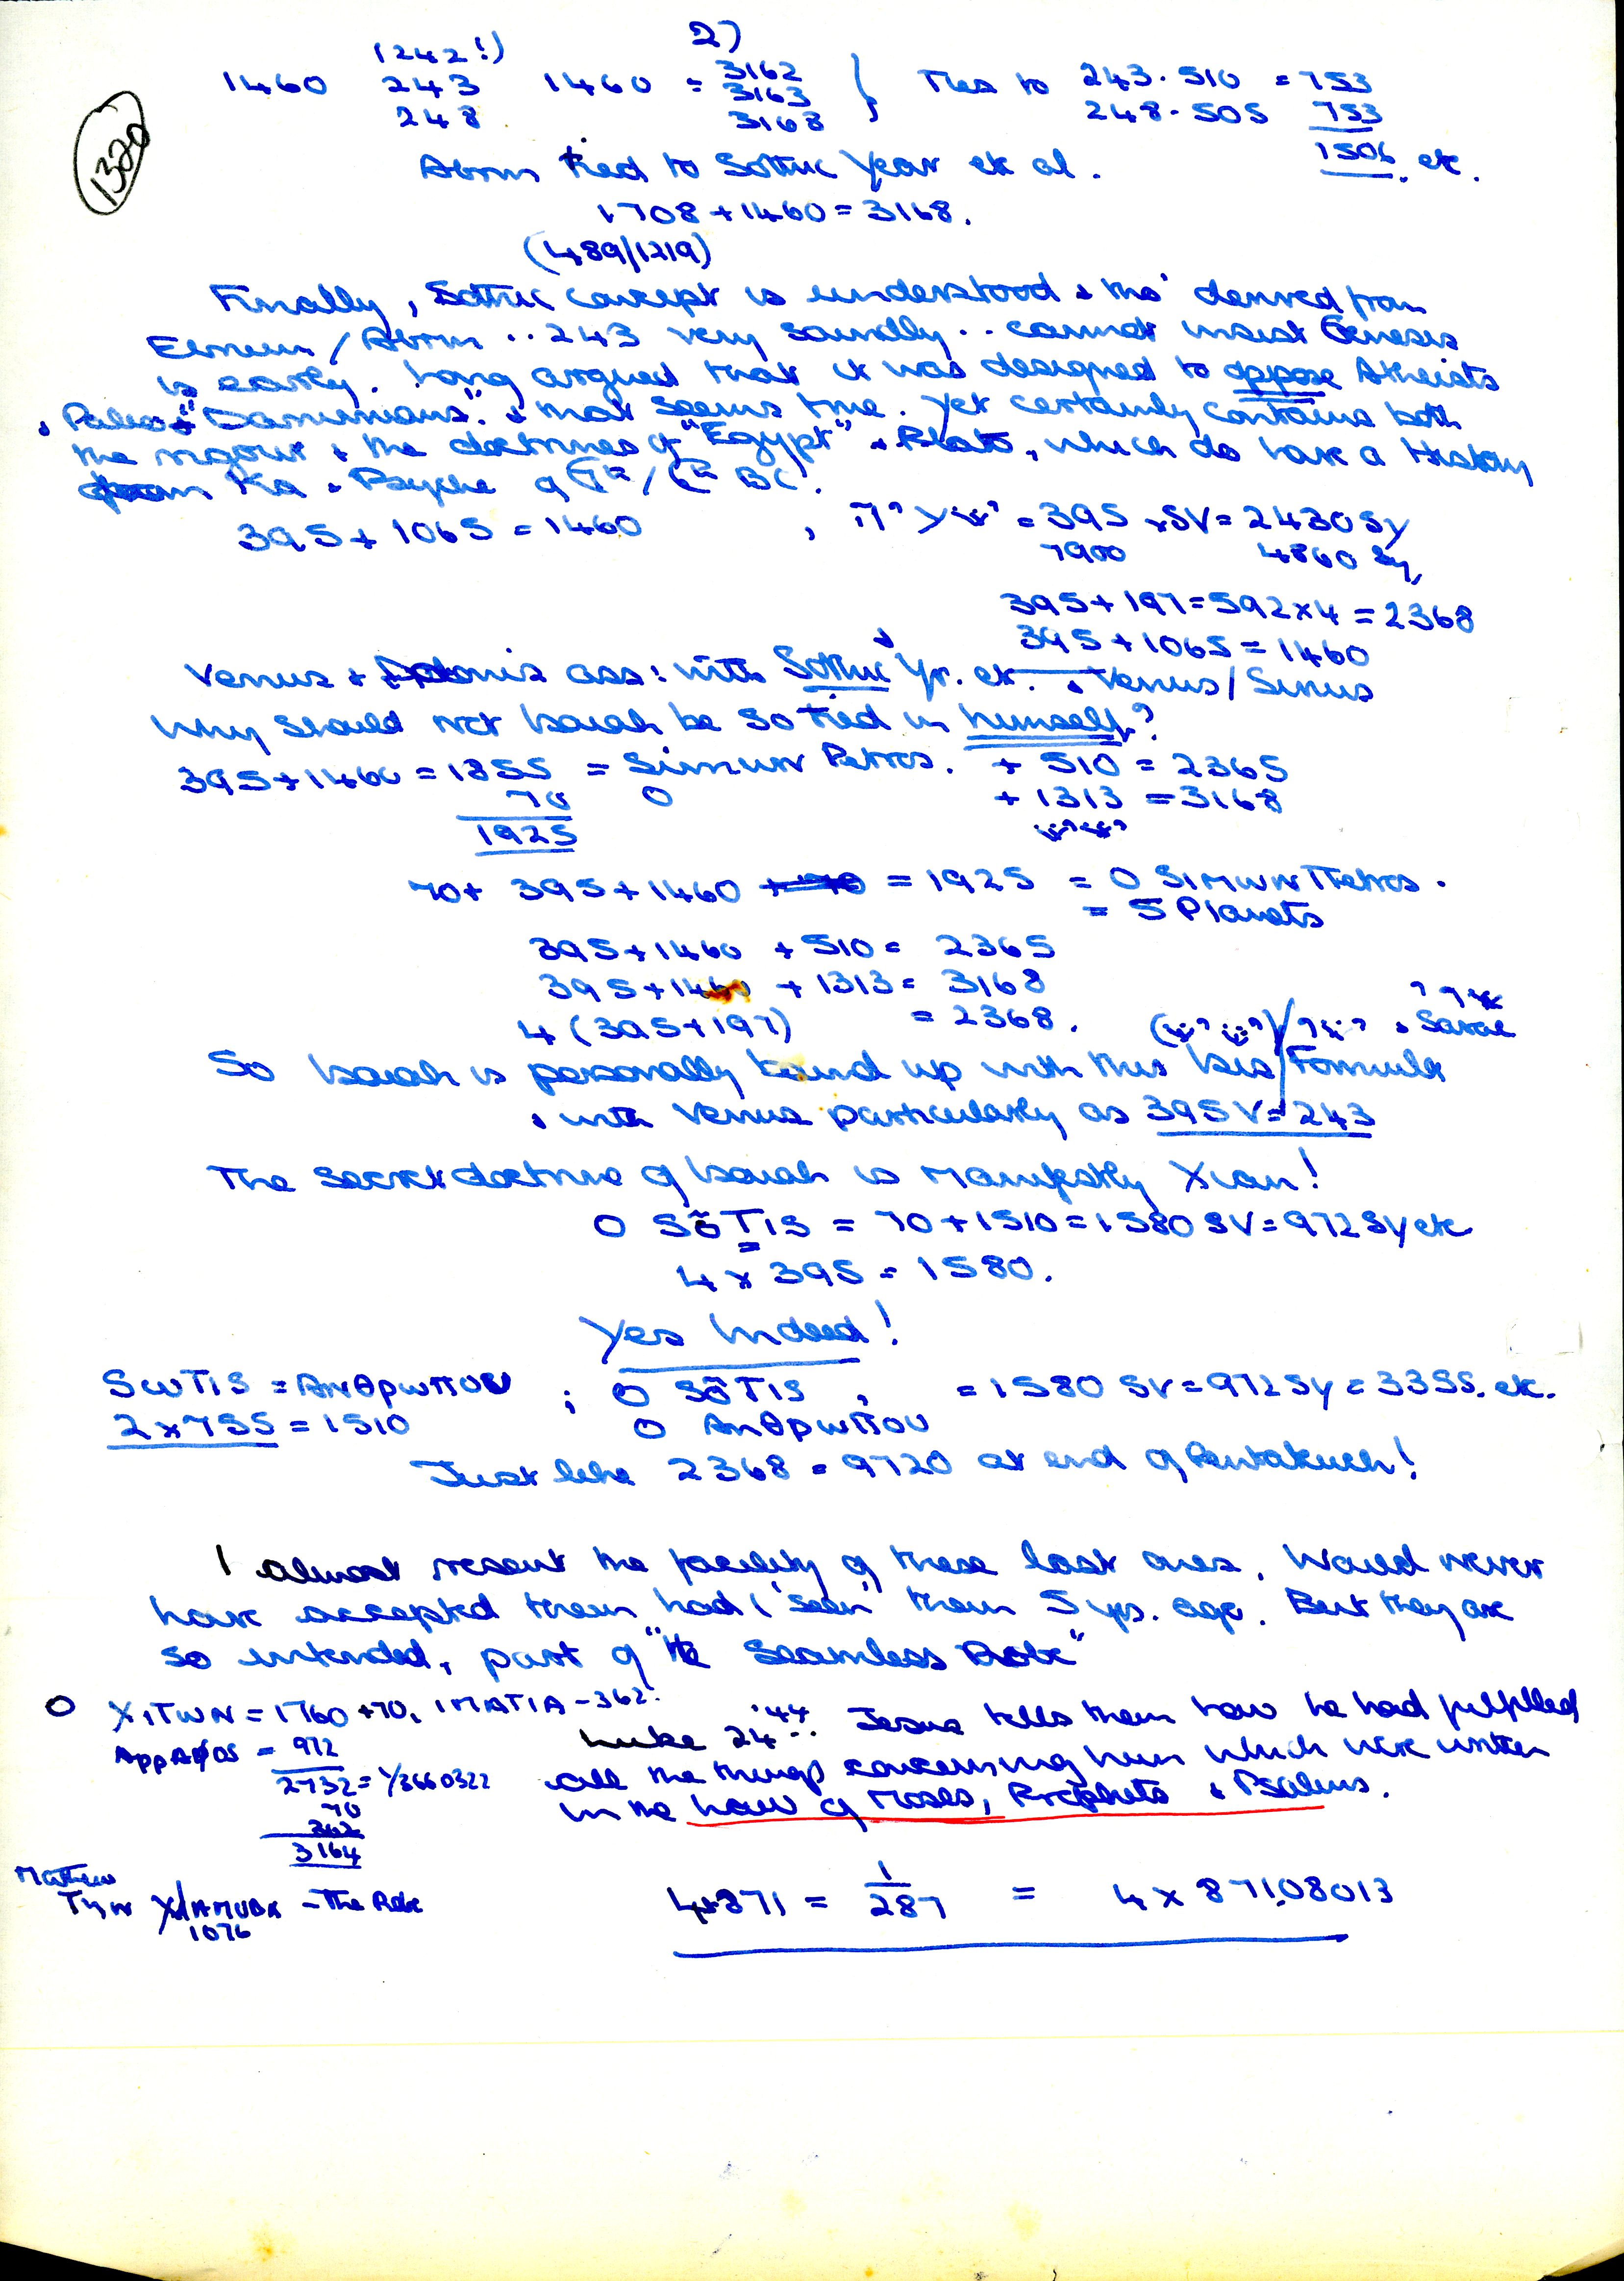 2)
1320
(242!)
1460 243 1460 = 3162 } Ties to 243.510 = 753
3163
248 3168 248.505 753
1506. etc.
Abram tied to Sothic Year et al.
1708 + 1460 = 3168.
(489/1219)
Finally, Sothic concept is understood & tho' derived from
/Abram .. 243 very soundly .. cannot insist Genesis
is early. Long argued that it was designed to oppose Atheists
& "Darwinians". & that seems true. Yet certainly contains both
the rigour & the doctrines of "Egypt" & Plato, which do have a History
Ka & Psyche of 7th/6th BC.
395 + 1065 = 1460 , = 395 SV = 2430 Sy
7900 4860 Sy,
395 + 197 = 592 x 4 = 2368
395 + 1065 = 1460
Venus + Adonis ass: with Sothic Yr. et. & Venus/Sirius
Why should not Isaiah be so tied in himself?
395 + 1460 = 1855 = Simwn Petros. + 510 = 2365
70 O + 1313 = 3168
1925
70 + 395 + 1460 = 1925 = O Simwn Petros.
= 5 Planets
395 + 1460 + 510 = 2365
395 + 1460 + 1313 = 3168
4 (395 + 197) = 2368. & Sarai
So Isaiah is personally bound up with this Isis/Formula
& with Venus particularly as 395V = 243
The secret doctrine of Isaiah is manifestly Xian!
O SŌTIS = 70 + 1510 = 1580 SV = 972 Sy etc
4 x 395 = 1580.
Yes Indeed!
SωTIS = ΑΝθρωπου ; O SŌTIS , = 1580 SV = 972 Sy = 3355. etc.
2 x 755 = 1510 O ΑΝθρωπου
Just like 2368 = 9720 at end of Pentateuch!
I almost resent the facility of these last ones. Would never
have accepted them had I 'seen' them 5 yrs. ago. But they are
so intended, part of "the Seamless Robe"
O XITWN = 1760 + 70. IMATIA - 362.
AppAφOS = 972
2732 = 1/3660322
70
362
3164
Luke 24:44.. Jesus tells them how he had fulfilled
all the things concerning him which were written
in the Law of Moses, Prophets & Psalms.
Mathew
- The Robe
1076
4x871 = 1/287 = 4 x 871.08013